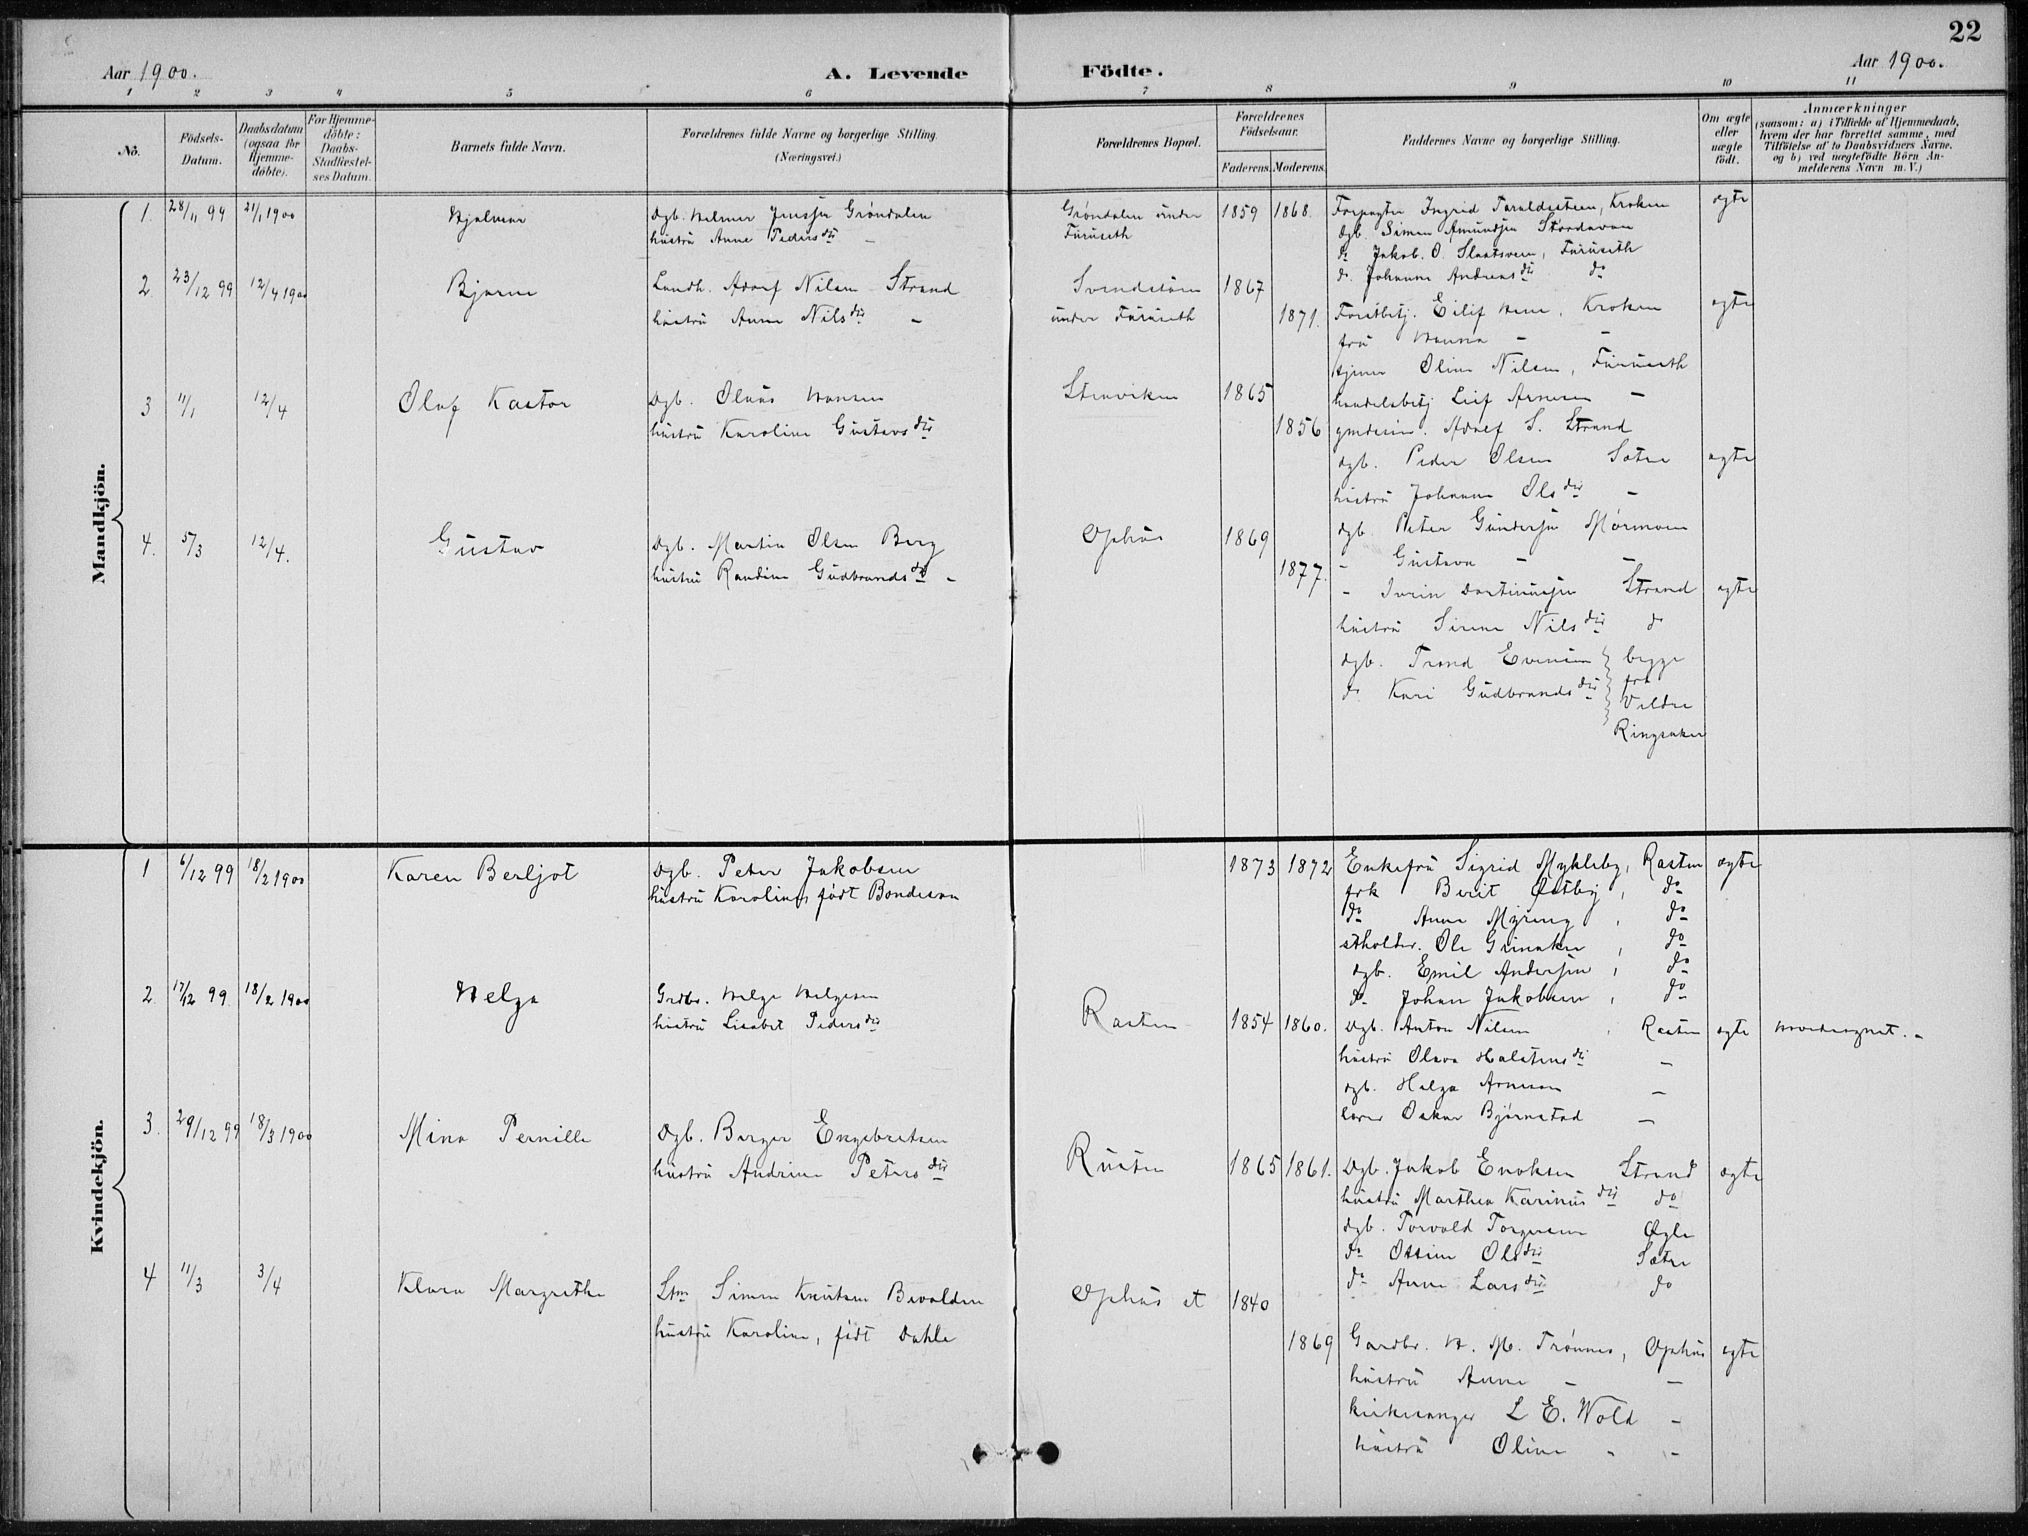 22
Aar 1900.
A. Levende Födte.
Aar 1900.
1 2 3 4 5 6 7 8 9 10 11
No.
Födsels-Datum.
Daabsdatum (ogsaa for Hjemme-döbte).
For Hjemme-döbte: Daabs-Stadfæstel-ses Datum.
Barnets fulde Navn.
Forældrenes fulde Navne og borgerlige Stilling. (Næringsvei.)
Forældrenes Bopæl.
Forældrenes Födselsaar.
Faderens. Moderens.
Faddernes Navne og borgerlige Stilling.
Om ægte eller uægte födt.
Anmærkninger
(saasom: a) i Tilfælde af Hjemmedaab, hvem der har forrettet samme, med Tilföielse af to Daabsvidners Navne. og b) ved uægtefödte Börn An-melderens Navn m.V.)
Mandkjön.
1. 28/11 99 21/1 1900 Hjalmar
Dgb. Helmer Jenssen Grøndalen
hustru Anne Peders dtr -
Grøndalen under
Furuseth
1859 1868.
Forpagter Ingrid Taraldsteen, Kroken
dgb. Simen Amundsen Stordavan
do Jakob. O. Slaatsveen, Furuseth
do. Johanne Andreas dtr do
ægte
2. 23/12 99 12/4 1900 Bjarne
Landh. Adolf Nilsen Strand
hustru Anne Nils dtr -
Svendstuen
under Furuseth
1867
1871.
Forstbetj. Eilif Hem, Kroken
fru Hanna -
tjener Oline Nilsen, Furuseth
handelsbetj Leif Arnesen -
Adolf S. Strand
ægte
3 11/1 12/4 Olaf Kastor
Dgb. Olaus Hansen
hustru Karoline Gustavs dtr
Stenviken
1865
1856
dgb. Peder Olsen Sætre
hustru Johanne Ols dtr -
ægte
4. 5/3 12/4. Gustav
Dgb. Martin Olsen Berg
hustru Randine Gudbrands dtr -
Ophus
1869
1877.
dgb. Peter Gundersen Mørmoen
- Gustava - -
- Iverin Strand
hustru Sirene Nils dtr do
dgb. Trond Evensen
do Kari Gudbrands dtr
begge
fra
Veldre
Ringsaker
ægte
Kvindekjön.
1 6/12 99 18/2 1900 Karen Berljot
Dgb. Peter Jakobsen
hustru Karoline, født Bondeson
1873 1872
Enkefru Sigrid Mykleby, Rasten
frk Berit Østby, do
do Anne Myreng, do
Ole Grinaker, do
dgb. Emil Andersen, do
do Johan Jakobsen, do
ægte
2. 17/12 99. 18/2 1900 Helga
Grdbr. Helge Helgesen
hustru Lisabet Peders dtr
Rasten
1854 1860.
Dgb. Anton Nilsen, Rasten
hustru Olava Halstens dtr -
dgb. Helga Arnesen -
lærer Oskar Bjørnstad -
ægte
Hovedsognet. -
3. 29/12 99 18/3 1900 Mina Pernille
Dgb. Berger Engebretsen
hustru Andrine Peters dtr
Rusten
1865 1861.
Dgb. Jakob Enoksen Strand
hustru Marthea Karinus dtr do
dgb. Torvald Torgersen Øgle
do Ottine Ols dtr Sætre
do Anne Lars dtr do
ægte
4 11/3 3/4 Klara Margrethe
Stm Simen Knutsen Bevolden
hustru Karoline, født Dahle
Ophus st
1840
1869
Gaardbr. H. M. Trønnes, Ophus
hustru Anne - -
kirkesanger L E. Wold -
hustru Oline - -
ægte